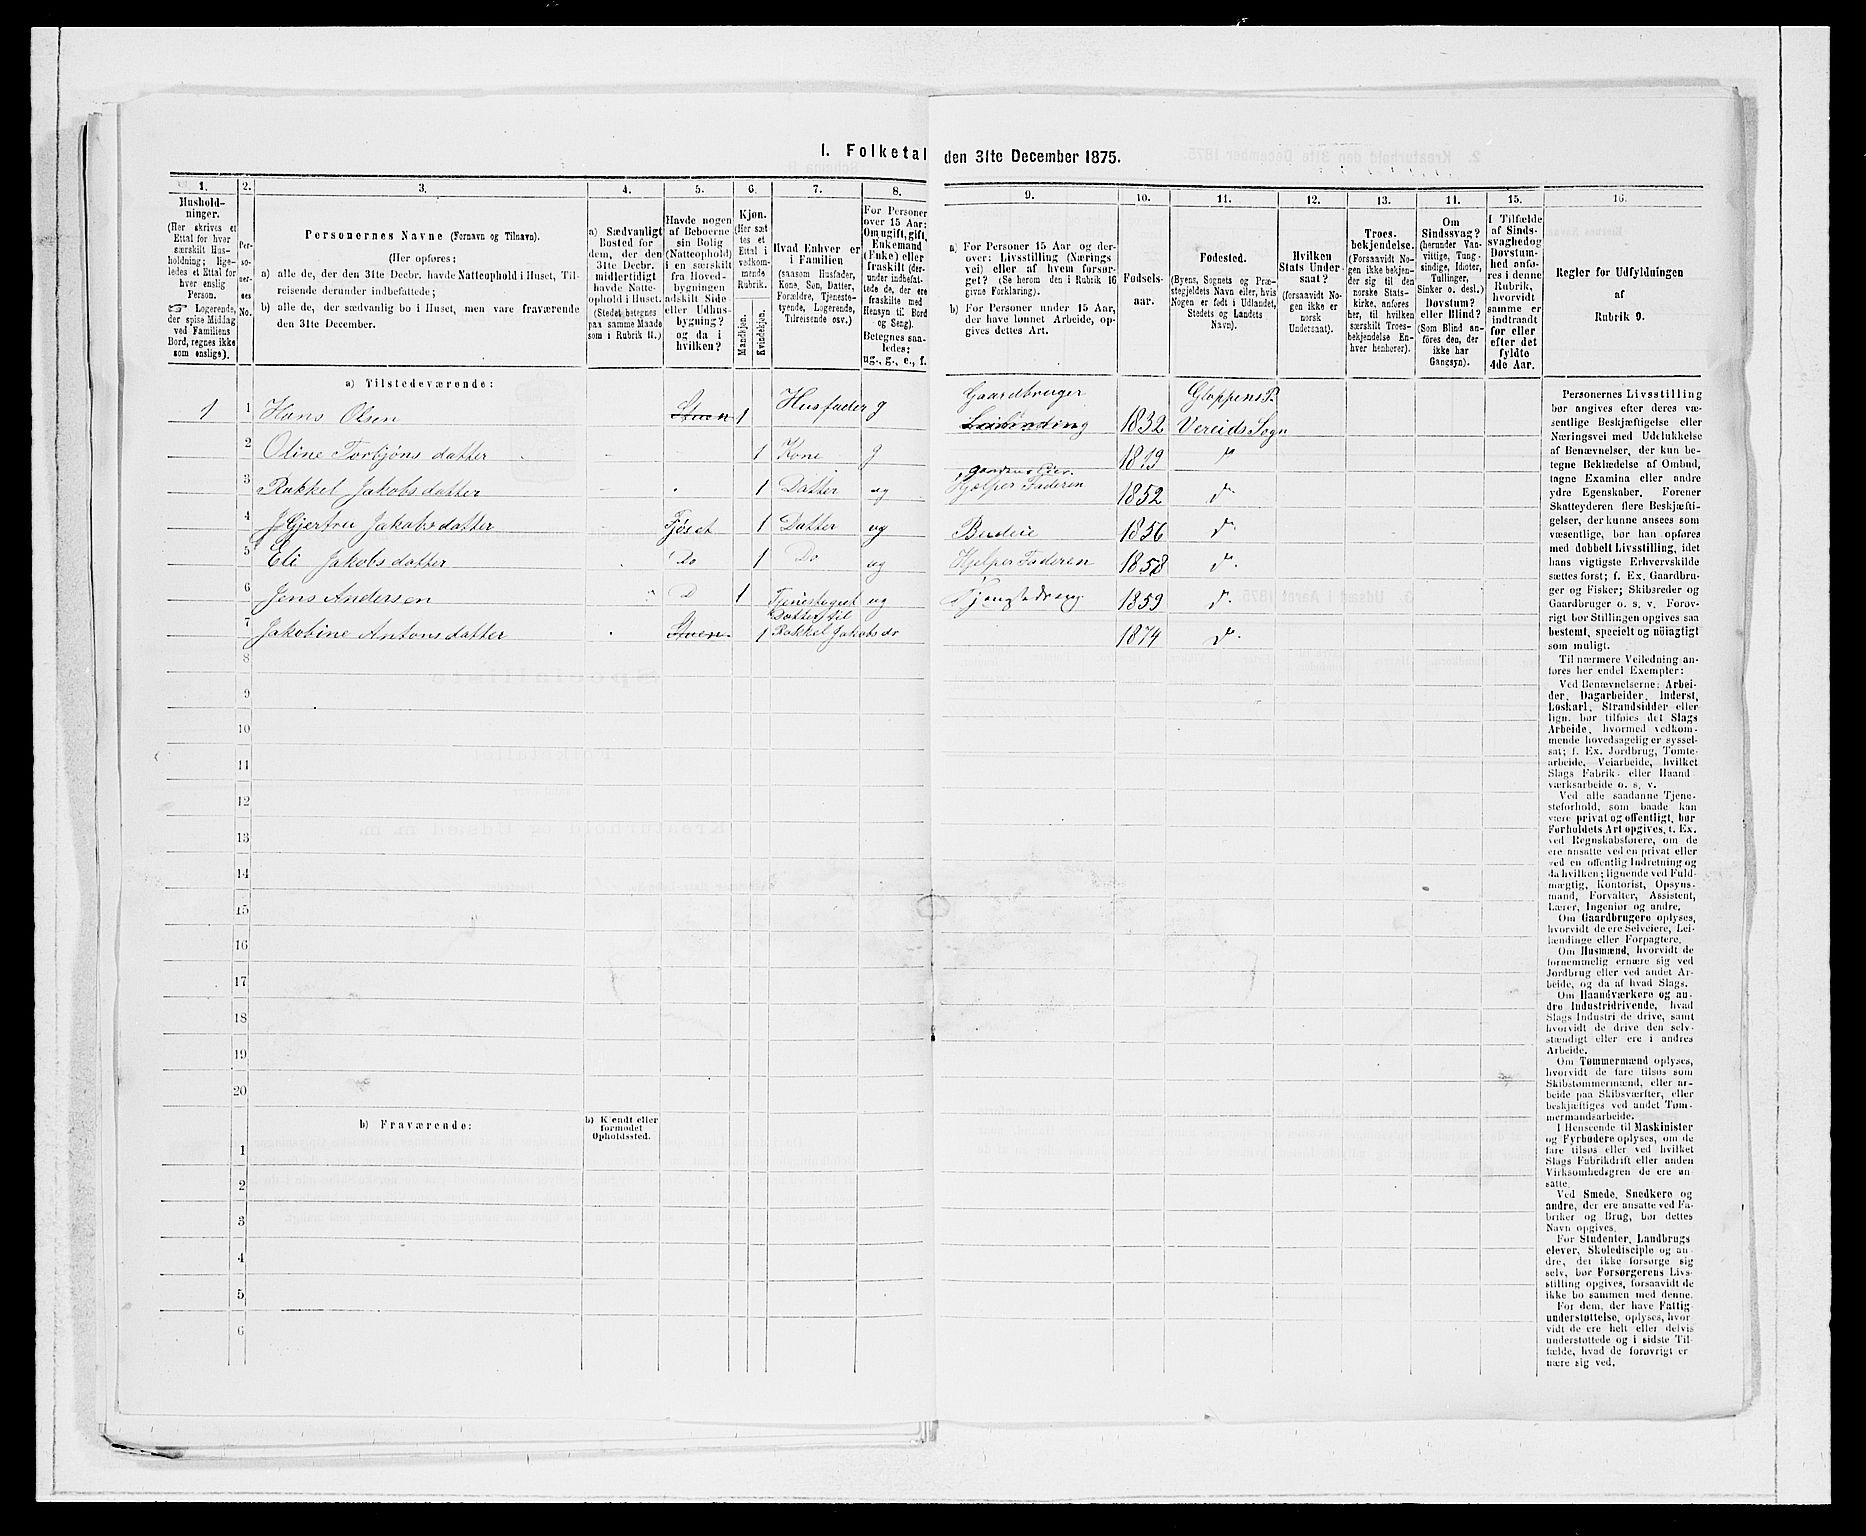 I. Folketal den 31te December 1875.
1. 2. 3. 4. 5. 6. 7. 8. 9. 10. 11. 12. 13. 14. 15. 16.
Husholdninger.
(Her skrives et
Ettal for hver
særskilt Husholdning;
ligeledes et Ettal for
hver enslig
Person.
☞ Logerende,
der spise Middag
ved Familiens
Bord, regnes ikke
som enslige).
Personernes No.
Personernes Navne (Fornavn og Tilnavn).
(Her opføres:
a) alle de, der den 31te Decbr. havde Natteophold i Huset, Tilreisende derunder indbefattede;
b) alle de, der sædvanlig bo i Huset, men vare fraværende
den 31te December.
a) Sædvanligt
Bosted for
dem, der den
31te Decbr.
midlertidigt
havde Natteophold i Huset.
(Stedet betegnes
paa samme Maade
som i Rubrik 11.)
Havde nogen
af Beboerne
sin Bolig
(Natteophold)
i en særskilt
fra Hovedbygningen
adskilt Side
eller Udhusbygning?
og da i
hvilken?
Kjøn.
(Her sættes et
Ettal i
vedkommende
Rubrik.
Mandkjøn. Kvindekjøn.
Hvad Enhver er
i Familien
(saasom Husfader,
Kone, Søn, Datter,
Forældre, Tjenestetyende, Logerende,
Tilreisende osv.)
For Personer
over 15 Aar:
Om ugift, gift,
Enkemand
(Enke) eller
fraskilt (derunder indbefattede de, der ere
fraskilte med
Hensyn til Bord
og Seng).
Betegnes saaledes:
ug., g., e., f.
a) For Personer 15 Aar og derover: Livsstilling (Næringsvei) eller af hvem forsørget? (Se herom den i Rubrik 16
givne Forklaring).
b) For Personer under 15 Aar,
der have lønnet Arbeide, opgives dettes Art.
Fødselsaar.
Fødested.
(Byens, Sognets og Præstegjeldets Navn eller, hvis
Nogen er født i Udlandet,
Stedets og Landets
Navn).
Hvilken
Stats Undersaat?
(forsaavidt Nogen ikke er
norsk
Undersaat).
Troesbekjendelse.
(Forsaavidt Nogen ikke bekjender sig til den
norske Statskirke, anføres
her, til hvilken
særskilt Troesbekjendelse Enhver henhører).
Om
Sindssvag?
(herunder Vanvittige, Tungsindige, Idioter,
Tullinger,
Sinker o. desl.)
Døvstum?
eller Blind?
(Som Blind anføres den, der
ikke har
Gangsyn).
I Tilfælde
af Sindssvaghed og
Døvstumhed anføres i denne
Rubrik,
hvorvidt
samme er
indtraadt
før eller
efter det
fyldte
4de Aar.
Regler for Udfyldningen
af
Rubrik 9.
a) Tilstedeværende:
1 1 Hans Olsen Stuen 1 Husfader g Gaardbruger Leilænding 1832 Gloppens P. Vereids Sogn
2 Oline Torbjøns datter 1 Kone g 1819 do
3 Rakkel Jakobsdatter 1 Datter ug Hjelper Faderen 1852 do
4 Gjertru Jakobsdatter Fjøset 1 Datter ug Budeie 1856 do
5 Eli Jakobsdatter Do 1 Do ug Hjelper Faderen 1858 do
6 Jens Andersen D 1 Tjenestegut ug 1859 do
7 Jakobine Antonsdatter Stuen 1 Datter til Rakkel Jakobsdr 1874 do
8
9
10
11
12
13
14
15
16
17
18
19
20
b) Fraværende:
b) Kjendt eller
formodet
Opholdssted.
1
2
3
4
5
6
Personernes Livsstilling
bør angives efter deres væsentlige Beskjæftigelse eller
Næringsvei med Udelukkelse
af Benævnelser, der kun betegne Beklædelse af Ombud,
tagne Examina eller andre
ydre Egenskaber. Forener
Skatteyderen flere Beskjæftigelser, der kunne ansees som
væsentlige, bør han opføres
med dobbelt Livsstilling, idet
hans vigtigste Erhvervskilde
sættes først; f. Ex. Gaardbruger og Fisker; Skibsreder og
Gaardbruger o. s. v. Forøvrigt bør Stillingen opgives saa
bestemt, specielt og nøiagtigt
som muligt.
Til nærmere Veiledning anføres her endel Exempler:
Ved Benævnelserne: Arbeider, Dagarbeider, Inderst,
Løskarl, Strandsidder eller
lign. bør tilføies det Slags
Arbeide, hvormed vedkommende hovedsagelig er sysselsat; f. Ex. Jordbrug, Tomtearbeide, Veiarbeide, hvilket
Slags Fabrik- eller Haandværksarbeide o. s. v.
Ved alle saadanne Tjenesteforhold, som baade kan
være privat og offentligt, bør
Forholdets Art opgives, t. Ex.
ved Regnskabsførere, om de
ere ansatte ved en privat eller
ved en offentlig Indretning og
da hvilken; lignende ved Fuldmægtig, Kontorist, Opsynsmand, Forvalter, Assistent,
Lærer, Ingeniør og andre.
Om Gaardbrugere oplyses,
hvorvidt de ere Selveiere, Leilændinge eller Forpagtere.
Om Husmænd, hvorvidt de
fornemmelig ernære sig ved
Jordbrug eller ved andet Arbeide, og da af hvad Slags.
Om Haandværkere og andre Industridrivende, hvad
Slags Industri de drive, samt
hvorvidt de drive den selvstændigt eller ere i andres
Arbeide.
Om Tømmermænd oplyses,
hvorvidt de fare tilsøs som
Skibstømmermænd, eller arbeide paa Skibsværfter, eller
beskjæftiges ved andet Tømmermandsarbeide.
I Henseende til Maskinister
og Fyrbødere oplyses, om de
fare tilsøs eller ved hvilket
Slags Fabrikdrift eller anden
Virksomhedsgren de ere ansatte.
Ved Smede, Snedkere og
andre, der ere ansatte ved Fabriker og Brug, bør dettes
Navn opgives.
For Studenter, Landbrugselever, Skoledisciple og andre, der ikke forsørge sig
selv, bør Forsørgerens Livsstilling opgives, forsaavidt de
ikke bo sammen med denne.
For dem, der have Fattigunderstøttelse, oplyses, hvorvidt de ere helt eller delvis
understøttede og i sidste Tilfælde, hvad de forøvrigt ernære sig ved.